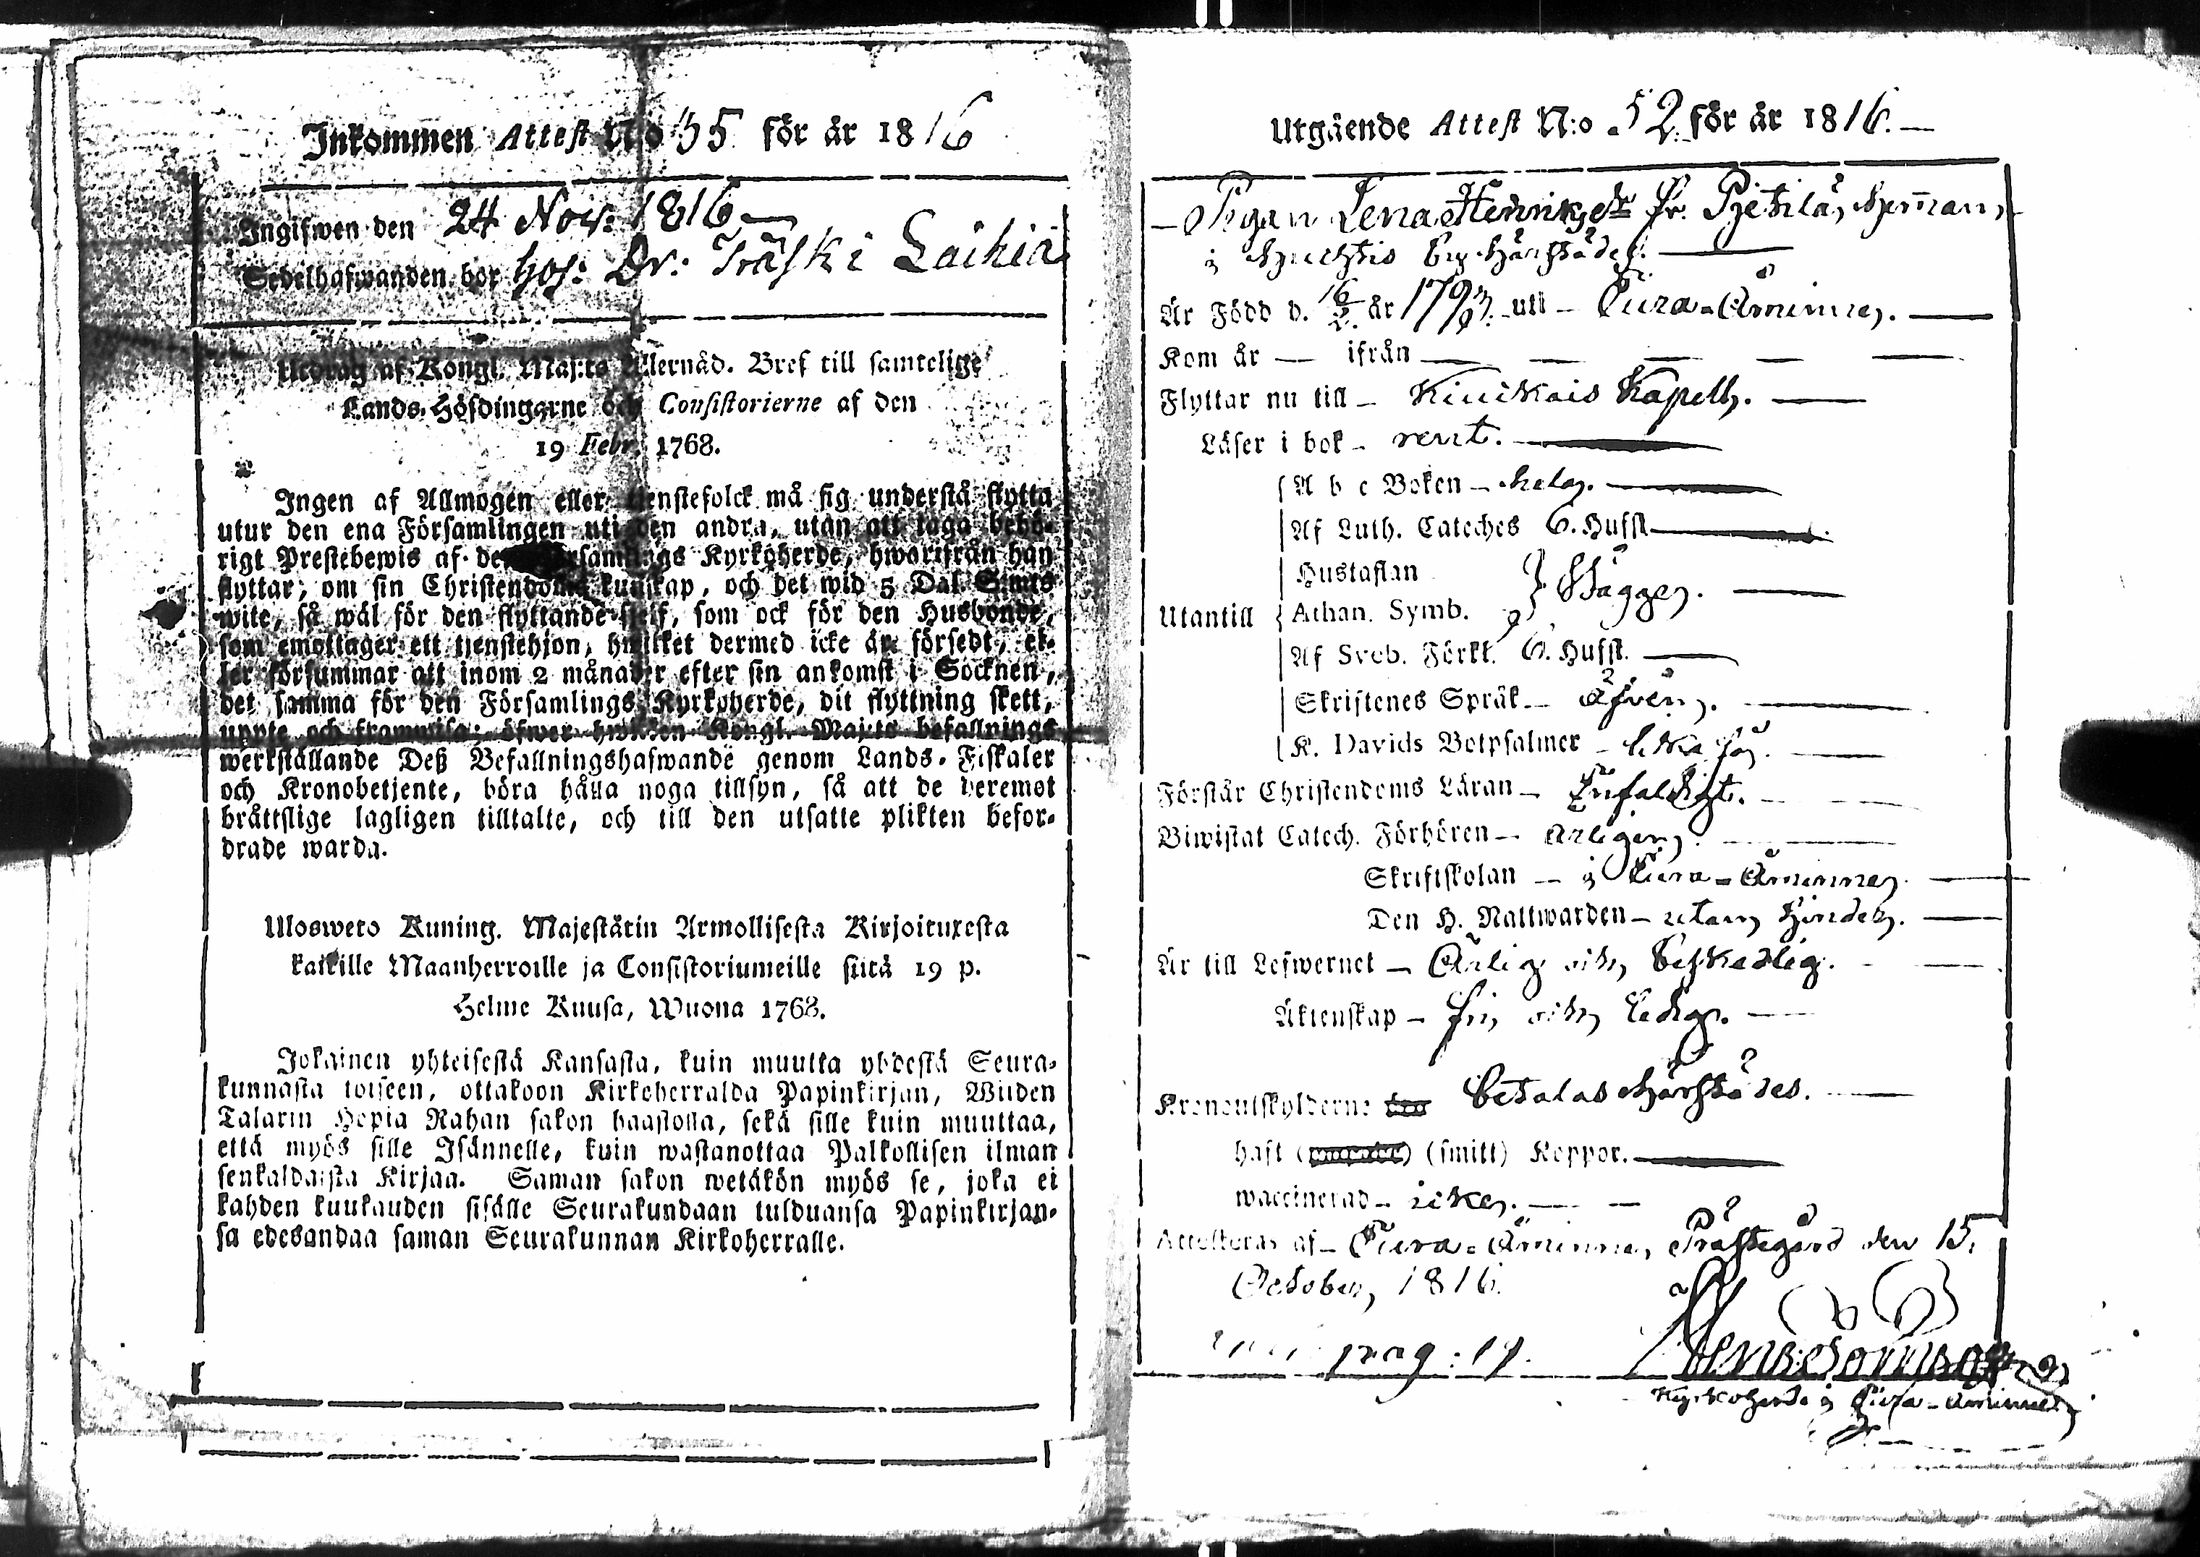 Inkommen Attest N:o 35 för år 1816
Ingifwen den 24 Nov: 1816
Sedelhafwanden bor hos: Dr: Träski Laihia
Utdrag af Kongl. Maj:ts Allernåd. Bref till samtelige
Lands-Höfdingarne och Consistorierne af den
19 Febr. 1768.
Ingen af Allmogen eller tjenstefolck må sig understå flytta
utur den ena Församlingen uti den andra, utan att taga behö-
rigt Prestebewis af den Församlings Kyrkoherde, hwarifrån han
flyttar; om sin Christendoms kunskap, och det wid 5 Dal. S:mts
wite, så wäl för den flyttande sjelf, som ock för den Husbonde,
som emottager ett tjenstehjon, hwilket dermed icke är försedt, el-
ler försummar att inom 2 månader efter sin ankomst i Socknen,
det samma för den Församlings Kyrkoherde, dit flyttning skett,
uppte och framwisa; öfwer hwilken Kongl. Maj:ts befallnings
werkställande Deß Befallningshafwande genom Lands-Fiskaler
och Kronobetjente, böra hålla noga tillsyn, så att de deremot
bråttslige lagligen tilltalte, och till den utsatte plikten befor-
drade warda.
Ulosweto Kuning. Majestätin Armollisesta Kirjoituxesta
kaikille Maanherroille ja Consistoriumeille siitä 19 p.
Helme Kuusa, Wuona 1768.
Jokainen yhteisestä Kansasta, kuin muutta yhdestä Seura-
kunnasta toiseen, ottakoon Kirkoherralda Papinkirjan, Wiiden
Talarin Hopia Rahan sakon haastolla, sekä sille kuin muuttaa,
että myös sille Isännelle, kuin wastanottaa Palkollisen ilman
senkaldaista Kirjaa. Saman sakon wetäkön myös se, joka ei
kahden kuukauden sisälle Seurakundaan tulduansa Papinkirjan-
sa edesandaa saman Seurakunnan Kirkoherralle.
Utgående Attest N:o 52 för år 1816.
Pigan Lena Henriksdr fr. Pjetilä, Hemman,
i Huchtis By Härstädes.
Är Född d. 16/2 år 1793. uti Eura-Åminne.
Kom år — ifrån —
Flyttar nu till Kiukais Kapell.
Läser i bok rent.
A b c Boken hela.
Af Luth. Cateches 6. Hufst.
Hustaflan
Utantill Athan. Symb. } Bägge.
Af Sveb. Förkl. 6. Hufst.
Skriftenes Språk även.
K. Davids Botpsalmer lika så.
Förstår Christendoms Läran Enfaldigt.
Biwistat Catech. Förhören årligen.
Skriftskolan i Eura-Åminne
Den H. Nattwarden utan hinder.
Är till Lefwernet Ärlig och beskedlig.
Äktenskap fri och ledig.
Kronoutskylderne betalas härstädes.
haft (smitt) Koppor.
waccinerad icke.
Attesteras af Eura-Åminne Prästegård den 15.
October, 1816.
pag: 19.
Kyrkoherde i Eura-Åminne